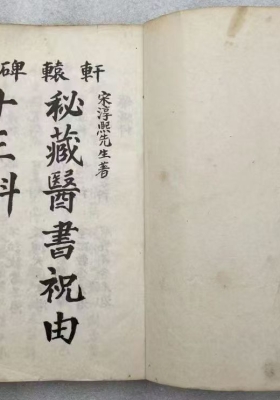 軒轅碑
宋淳熙先生著
秘藏醫書祝由
十三科